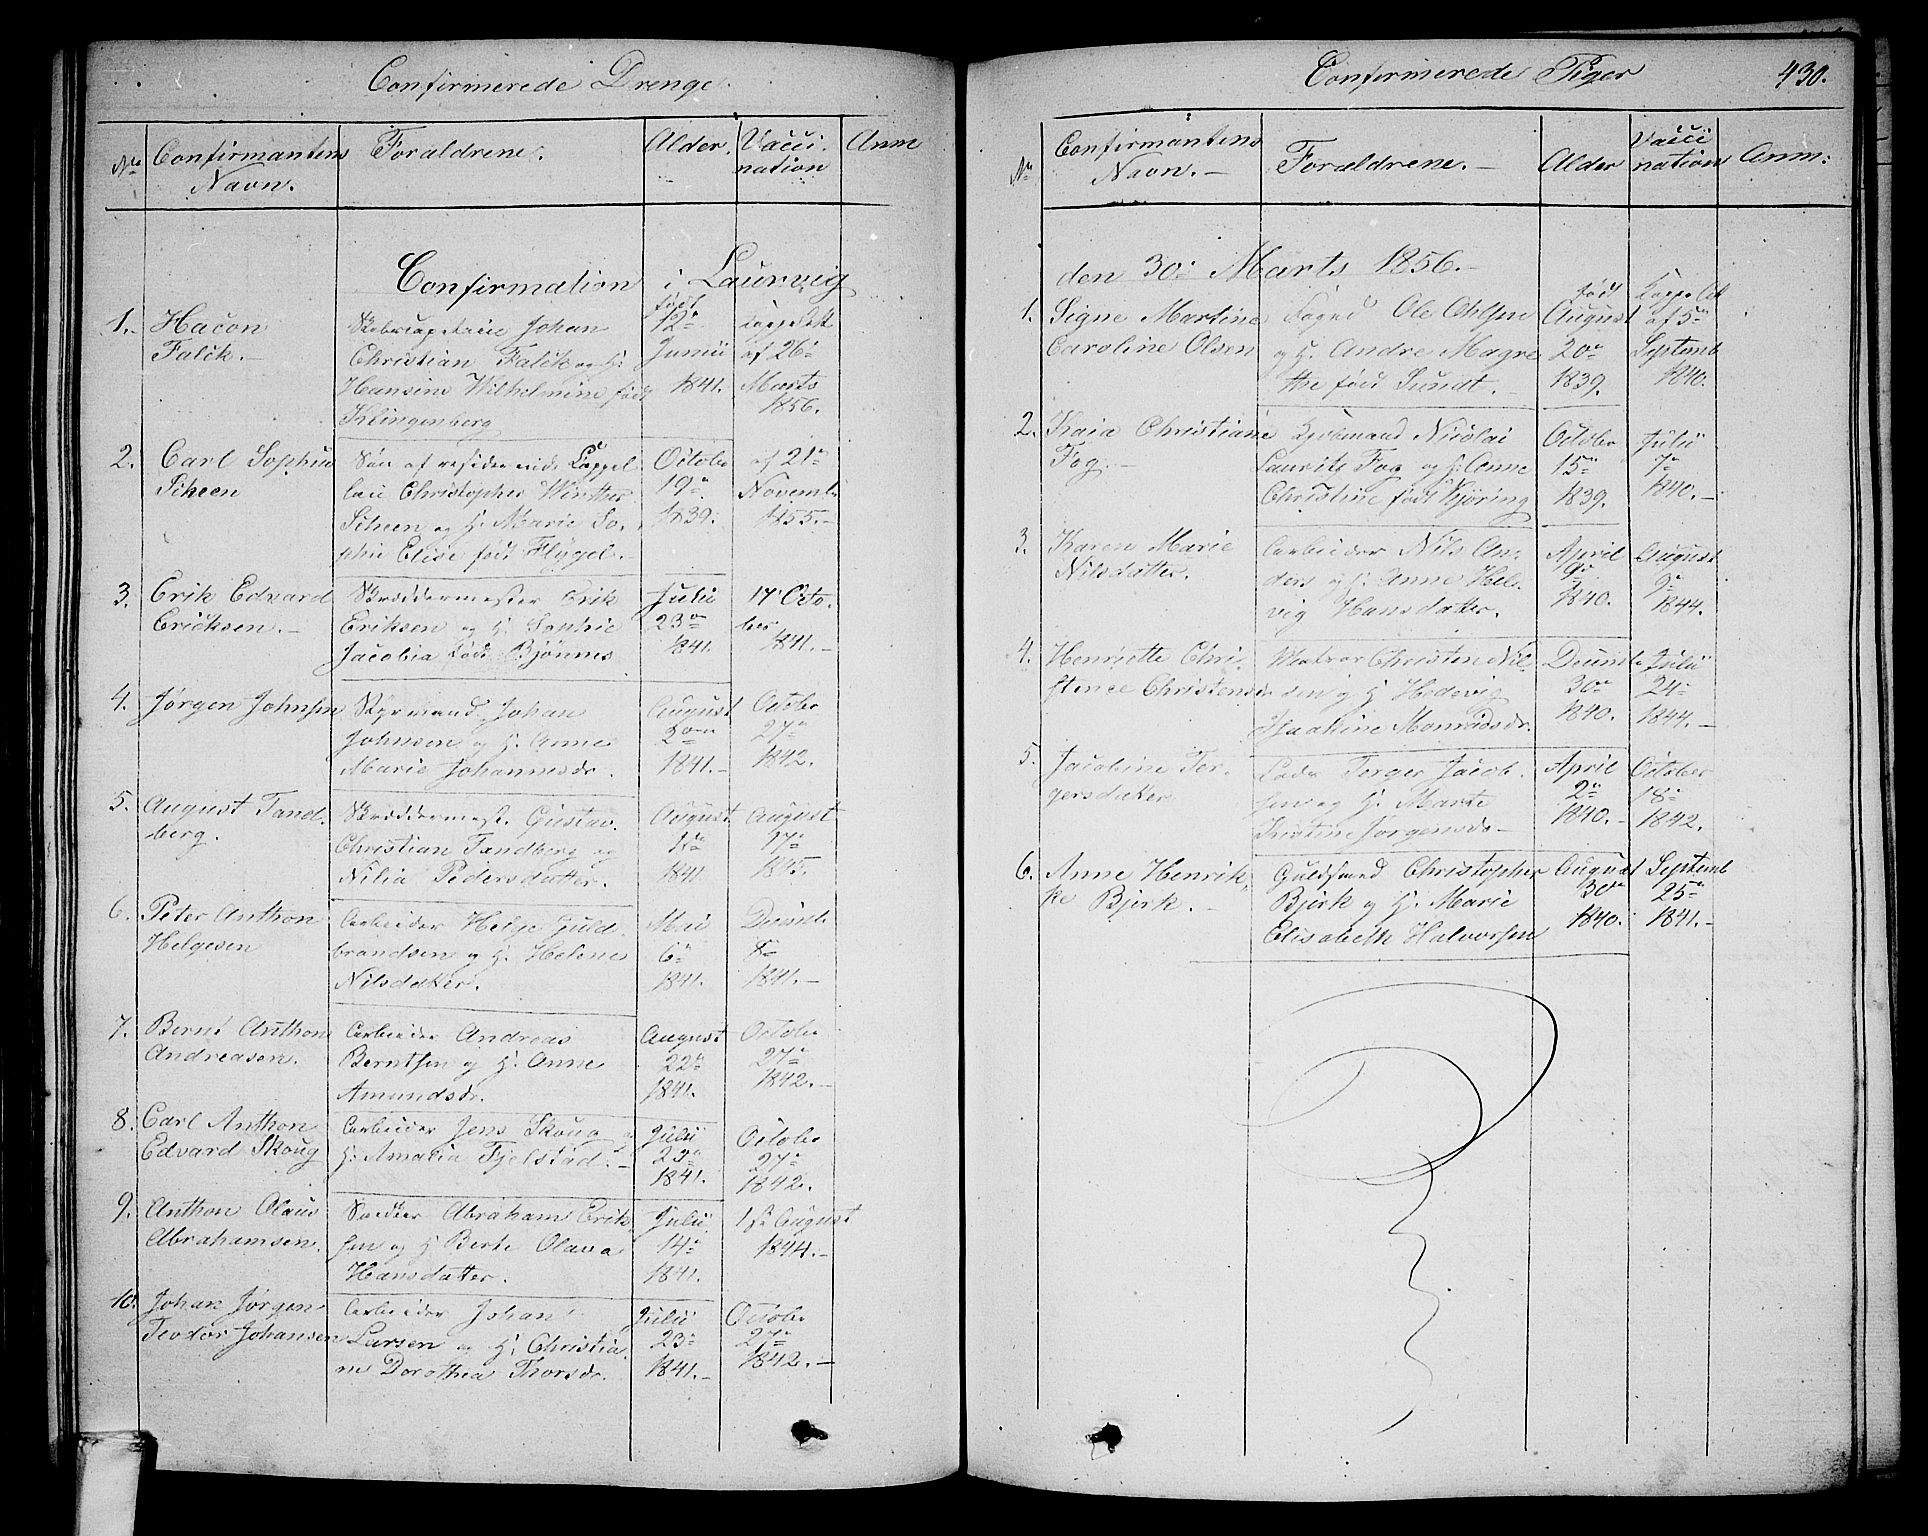 Confirmerede Drenge.
No Confirmantens Navn. Forældrene. Alder. Vacci-nation Anm
Confirmation i Laurvig
1. Hacon Falck.
Johan
Christian Falck og H.
Hansine Wilhelmine født
Klingenberg
født
12te
Junii
1841.
af 26de
Marts
1856.
2. Carl Sophus
Scheen
Søn af residerende Cappel
lan Christopher Winther
Scheen og H. Marie So-
phie Elise født Flygel.
October
19de
1839.
af 21de
Novemb.
1855.
3. Erik Edvard
Ericksen.
Skræddermester Erik
Eriksen og H. Sophie
Jacobia født Bjönnes
Julii
23de
1841.
17 Octo-
ber
1841.
4. Jørgen Johnsen
Styrmand Johan
Johnsen og H. Anne
Marie Johannesdr.
August
2den
1841.
Octobr
27de
1842.
5. August Tand-
berg.
Skræddermest. Gustav
Christian Tandberg og
Nilia Pedersdatter.
August
1ste
1841
August
17de
1845.
6. Peter Anthon
Helgesen
Arbeider Helje Guld-
brandsen og H. Helene
Nilsdatter.
Mai
6te
1841.
Decemb
8de
1841.
7. Bernt Anthon
Andreasen.
Arbeider Andreas
Berntsen og H. Anne
Amundsdr.
August
22de
1841.
Octobr
27de
1842.
8. Carl Anthon
Edvard Skoug
Arbeider Jens Skoug og
H. Amalia Fjelstad.
Julii
23de
1841.
Octobr
27de
1842.
9. Anthon Olaus
Abrahamsen.
Abraham Erik-
sen og H. Berte Olava
Hansdatter.
Julii
14de
1841.
1ste August
1844.
10. Johan Jørgen
Teodor Johansen
Arbeider Johan
Larsen og H. Christia-
ne Dorothea Thorsdr.
Julii
23de
1841.
Octobr
27de
1842.
Confirmerede Piger 430.
No Confirmantens Navn. Forældrene. Alder Vacci nation Anm:
den 30. Marts 1856.
1. Signe Martine
Caroline Olsen
Foged Ole Ohlsen
og H. Andre Magre
the født Sundt.
født
August
20de
1839.
af 5te
Septemb
1840.
2. Kaia Christiane
Fog.
Kjøbmand Nicolai
Laurits Fog og H. Anne
Christine født Kjøring
October
15de
1839.
Julii
7de
1840.
3. Karen Marie
Nilsdatter.
Arbeider Nils An-
ders og H. Anne Hel-
vig Hansdatter.
April
9de
1840.
August
9de
1844.
4. Henriette Chri-
stence Christensdr
Matros Christen Nil-
sen og H. Hedevig
Joachine Monradsdr.
Decemb.
30de
1840.
Julii
24de
1844.
5. Jacobine Ter-
gersdatter
Lods Terger Jacob-
sen og H. Marte
Kristine Jørgensdr
April
2den
1840.
October
18de
1842.
6. Anne Henrik-
ke Bjerk.
Guldsmed Christopher
Bjerk og H. Marie
Elisabeth Halvorsen
August
30te
1840.
Septemb
25de
1841.